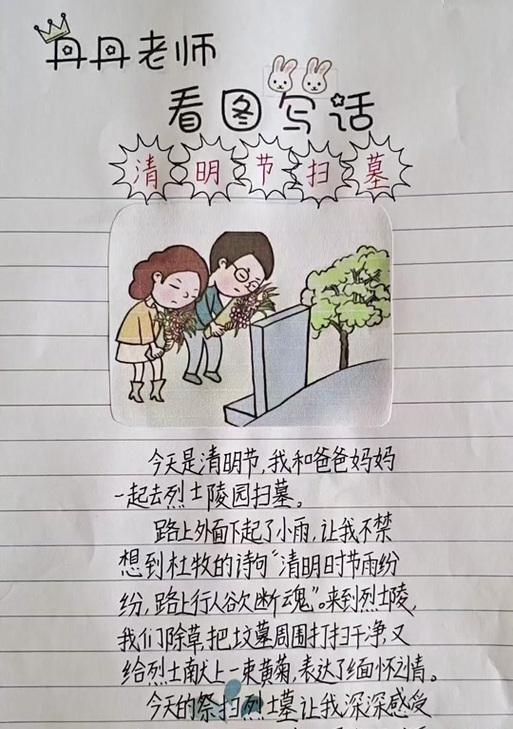 丹丹老师
看图写话
清明节扫墓
今天是清明节,我和爸爸妈妈
一起去烈士陵园扫墓。
路上外面下起了小雨,让我不禁
想到杜牧的诗句“清明时节雨纷
纷,路上行人欲断魂”。来到烈士陵,
我们除草,把坟墓周围打扫干净,又
给烈士献上一束黄菊,表达了缅怀之情。
今天的祭扫烈士墓让我深深感受